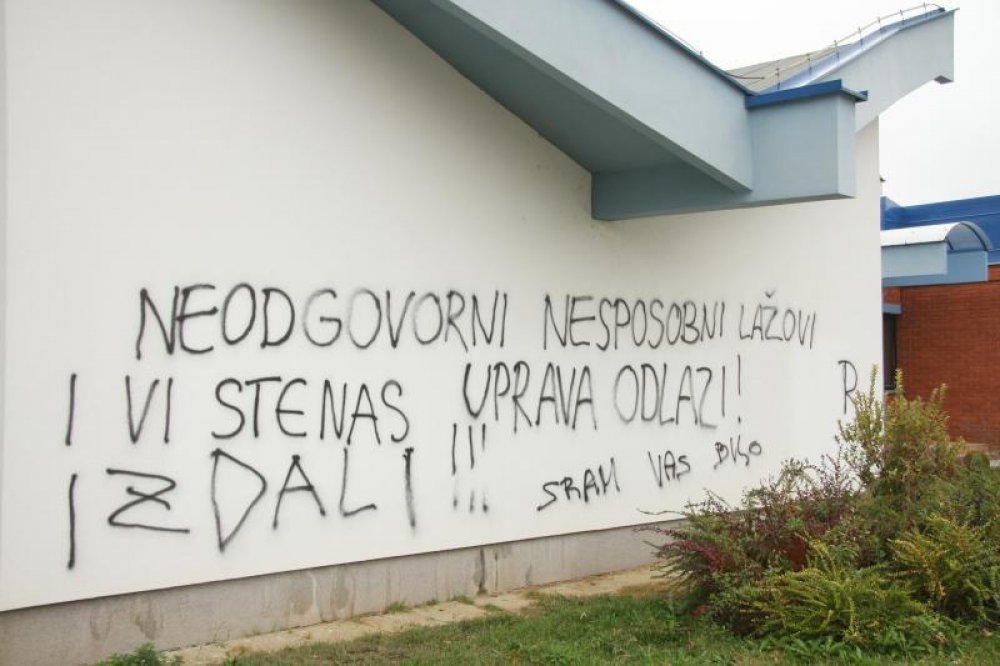 NEODGOVORNI NESPOSOBNI LAŽOVI
I VI STE NAS UPRAVA ODLAZI! R
IZDALI!!!
SRAM VAS BILO